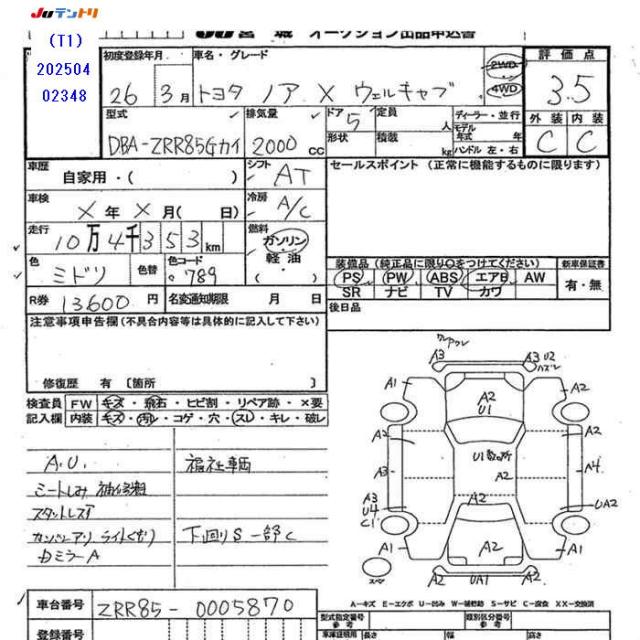 JUテントリ
JU宮城 オークション出品申込書
(T1)
202504
02348
初度登録年月
車名・グレード
26年 3月
トヨタ ノア X ウェルキャブ
2WD
4WD
評価点
3.5
外装 内装
C C
型式
DBA-ZRR85Gカイ
排気量
2000 cc
ドア 5
形状
定員 人
積載 kg
ディーラー・並行
モデル年式 年
ハンドル 左・右
車歴
自家用・( )
シフト AT
セールスポイント (正常に機能するものに限ります)
車検
X年 X月( 日)
冷房 A/C
走行
10万4千353km
燃料
ガソリン
軽油
・( )
色
ミドリ
色替
色コード
789
装備品 (純正品に限り○をつけてください)
PS PW ABS エアB AW
SR ナビ TV カワ
新車保証書
有・無
R券 13600円
名変通知期限 月 日
後日品
注意事項申告欄(不具合内容等は具体的に記入して下さい)
修復歴 有〔箇所 〕
検査員記入欄
FW キズ・飛石・ヒビ割・リペア跡・×要
内装 キズ・汚レ・コゲ・穴・スレ・キレ・破レ
A.U.
福祉車輌
シートしみ 補修粗
スタットレス下
カンバンアリ ライトくもり
下回りS一部C
Dミラー A
A3
A3 U2
A1
A2
A2
U1
A2
A2
U1数ヶ所
A3
A2
A4
A3
U4
C1
A2
UA2
A1
A2
A1
A2
UA1
A2
A-キズ E-エクボ U-凹み W-補修跡 S-サビ C-腐食 XX-交換済
車台番号
ZRR85-0005870
登録番号
型式指定番号
参考
類別区分番号
参考
長さ 幅 高さ